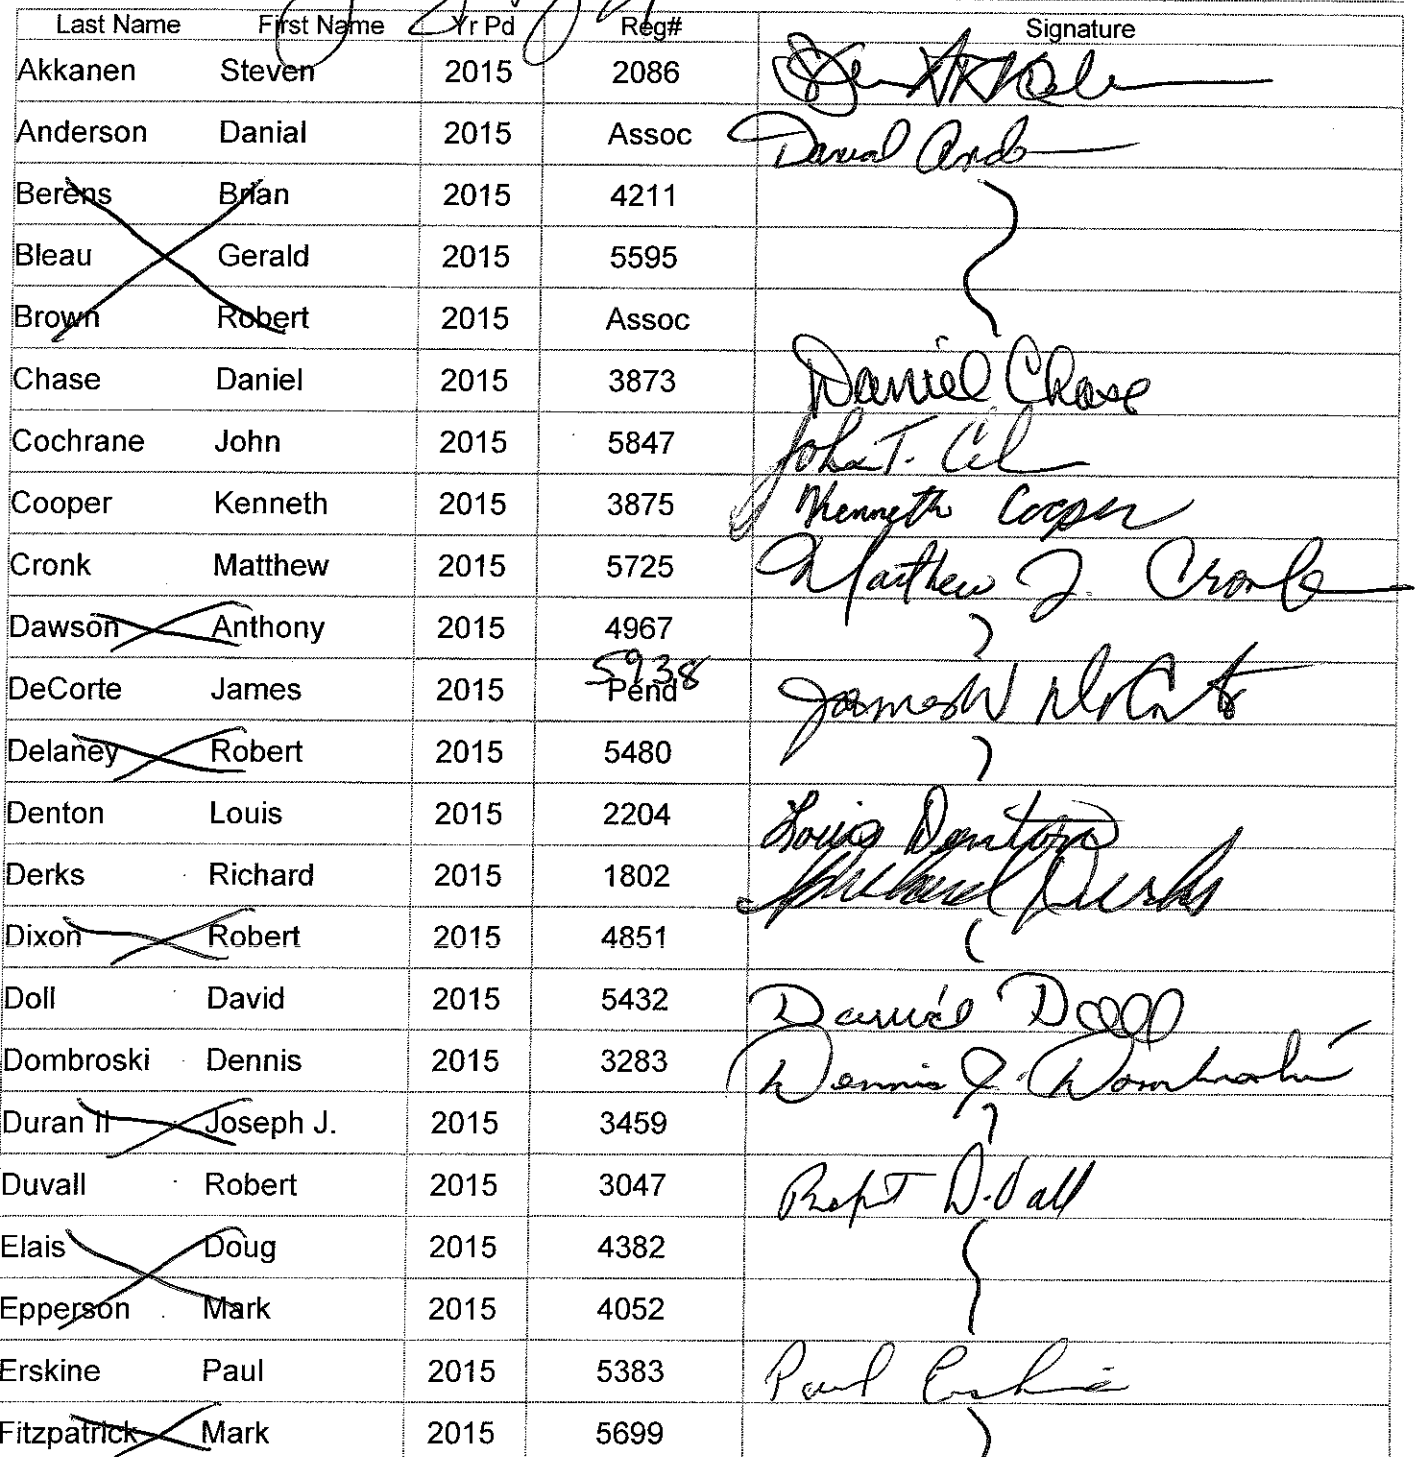 Last Name First Name Yr Pd Reg# Signature
Akkanen Steven 2015 2086
Anderson Danial 2015 Assoc Danial
Berens Brian 2015 4211
Bleau Gerald 2015 5595
Brown Robert 2015 Assoc
Chase Daniel 2015 3873 Daniel Chase
Cochrane John 2015 5847 John T.
Cooper Kenneth 2015 3875 Kenneth Cooper
Cronk Matthew 2015 5725 Matthew J. Cronk
Dawson Anthony 2015 4967
5938
DeCorte James 2015 Pend James W DeCorte
Delaney Robert 2015 5480
Denton Louis 2015 2204 Louis Denton
Derks Richard 2015 1802 Richard Derks
Dixon Robert 2015 4851
Doll David 2015 5432 David Doll
Dombroski Dennis 2015 3283 Dennis J. Dombroski
Duran II Joseph J. 2015 3459
Duvall Robert 2015 3047
Elais Doug 2015 4382
Epperson Mark 2015 4052
Erskine Paul 2015 5383 Paul Erskine
Fitzpatrick Mark 2015 5699